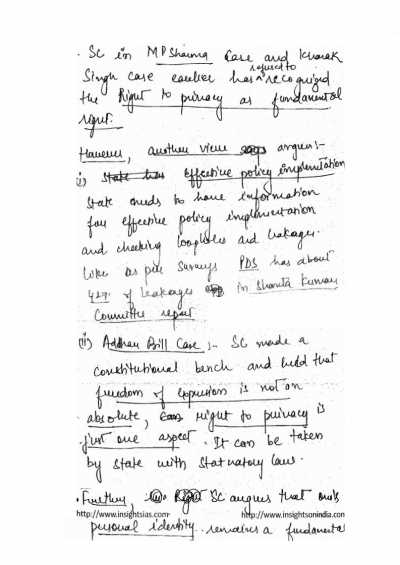 · SC in M P Sharma case and Kharak
Singh case earlier has refused to recognized
the Right to privacy as fundamental
right.
However, another view argues:-
i) State has Effective policy implementation
State needs to have information
for effective policy implementation
and checking loopholes and leakages.
Like as per surveys PDS has about
42% of leakages in Shanta Kumar
Committee report
(ii) Aadhar Bill Case :- SC made a
constitutional bench and held that
freedom of expression is not an
absolute, right to privacy is
just one aspect. It can be taken
by State with Statuatory law.
· Further, SC argues that only
http://www.insightsias.com http://www.insightsonindia.com
personal identity remains a fundamental